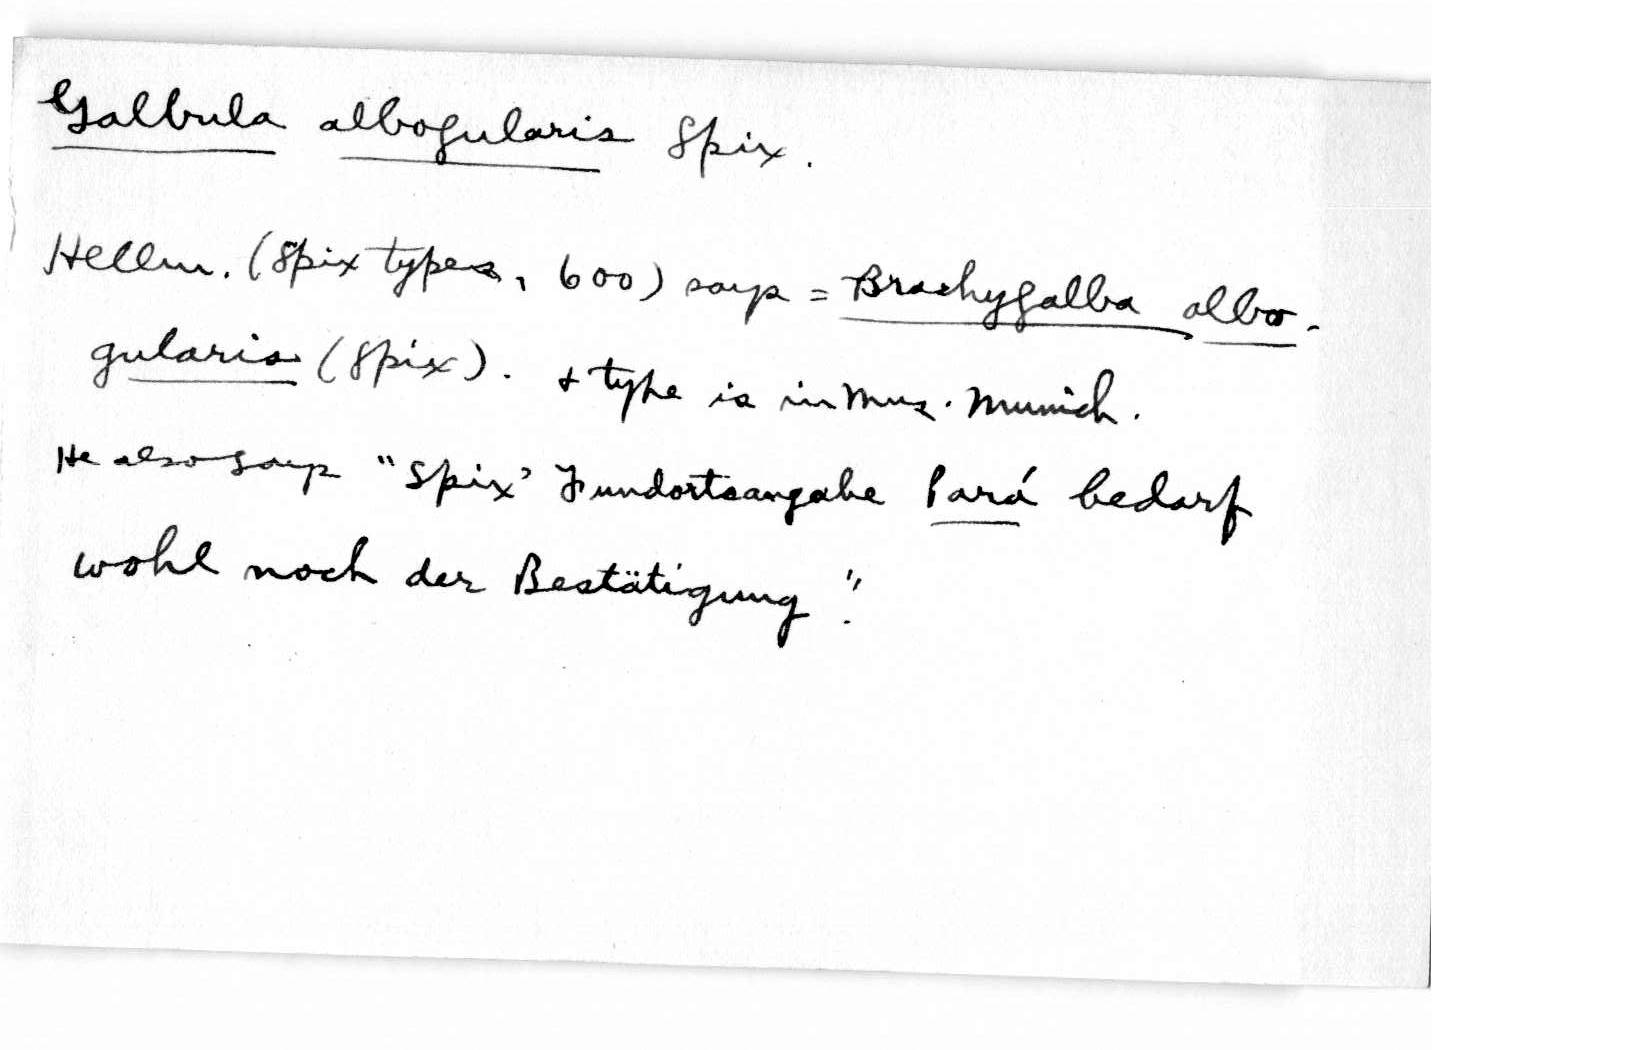 Galbula albogularis Spix.
Hellm. (Spix types, 600) says = Brachygalba albo-
gularis (Spix). + type is in Mus. Munich.
He also says "Spix' Fundortsangabe Pará bedarf
wohl noch der Bestätigung".